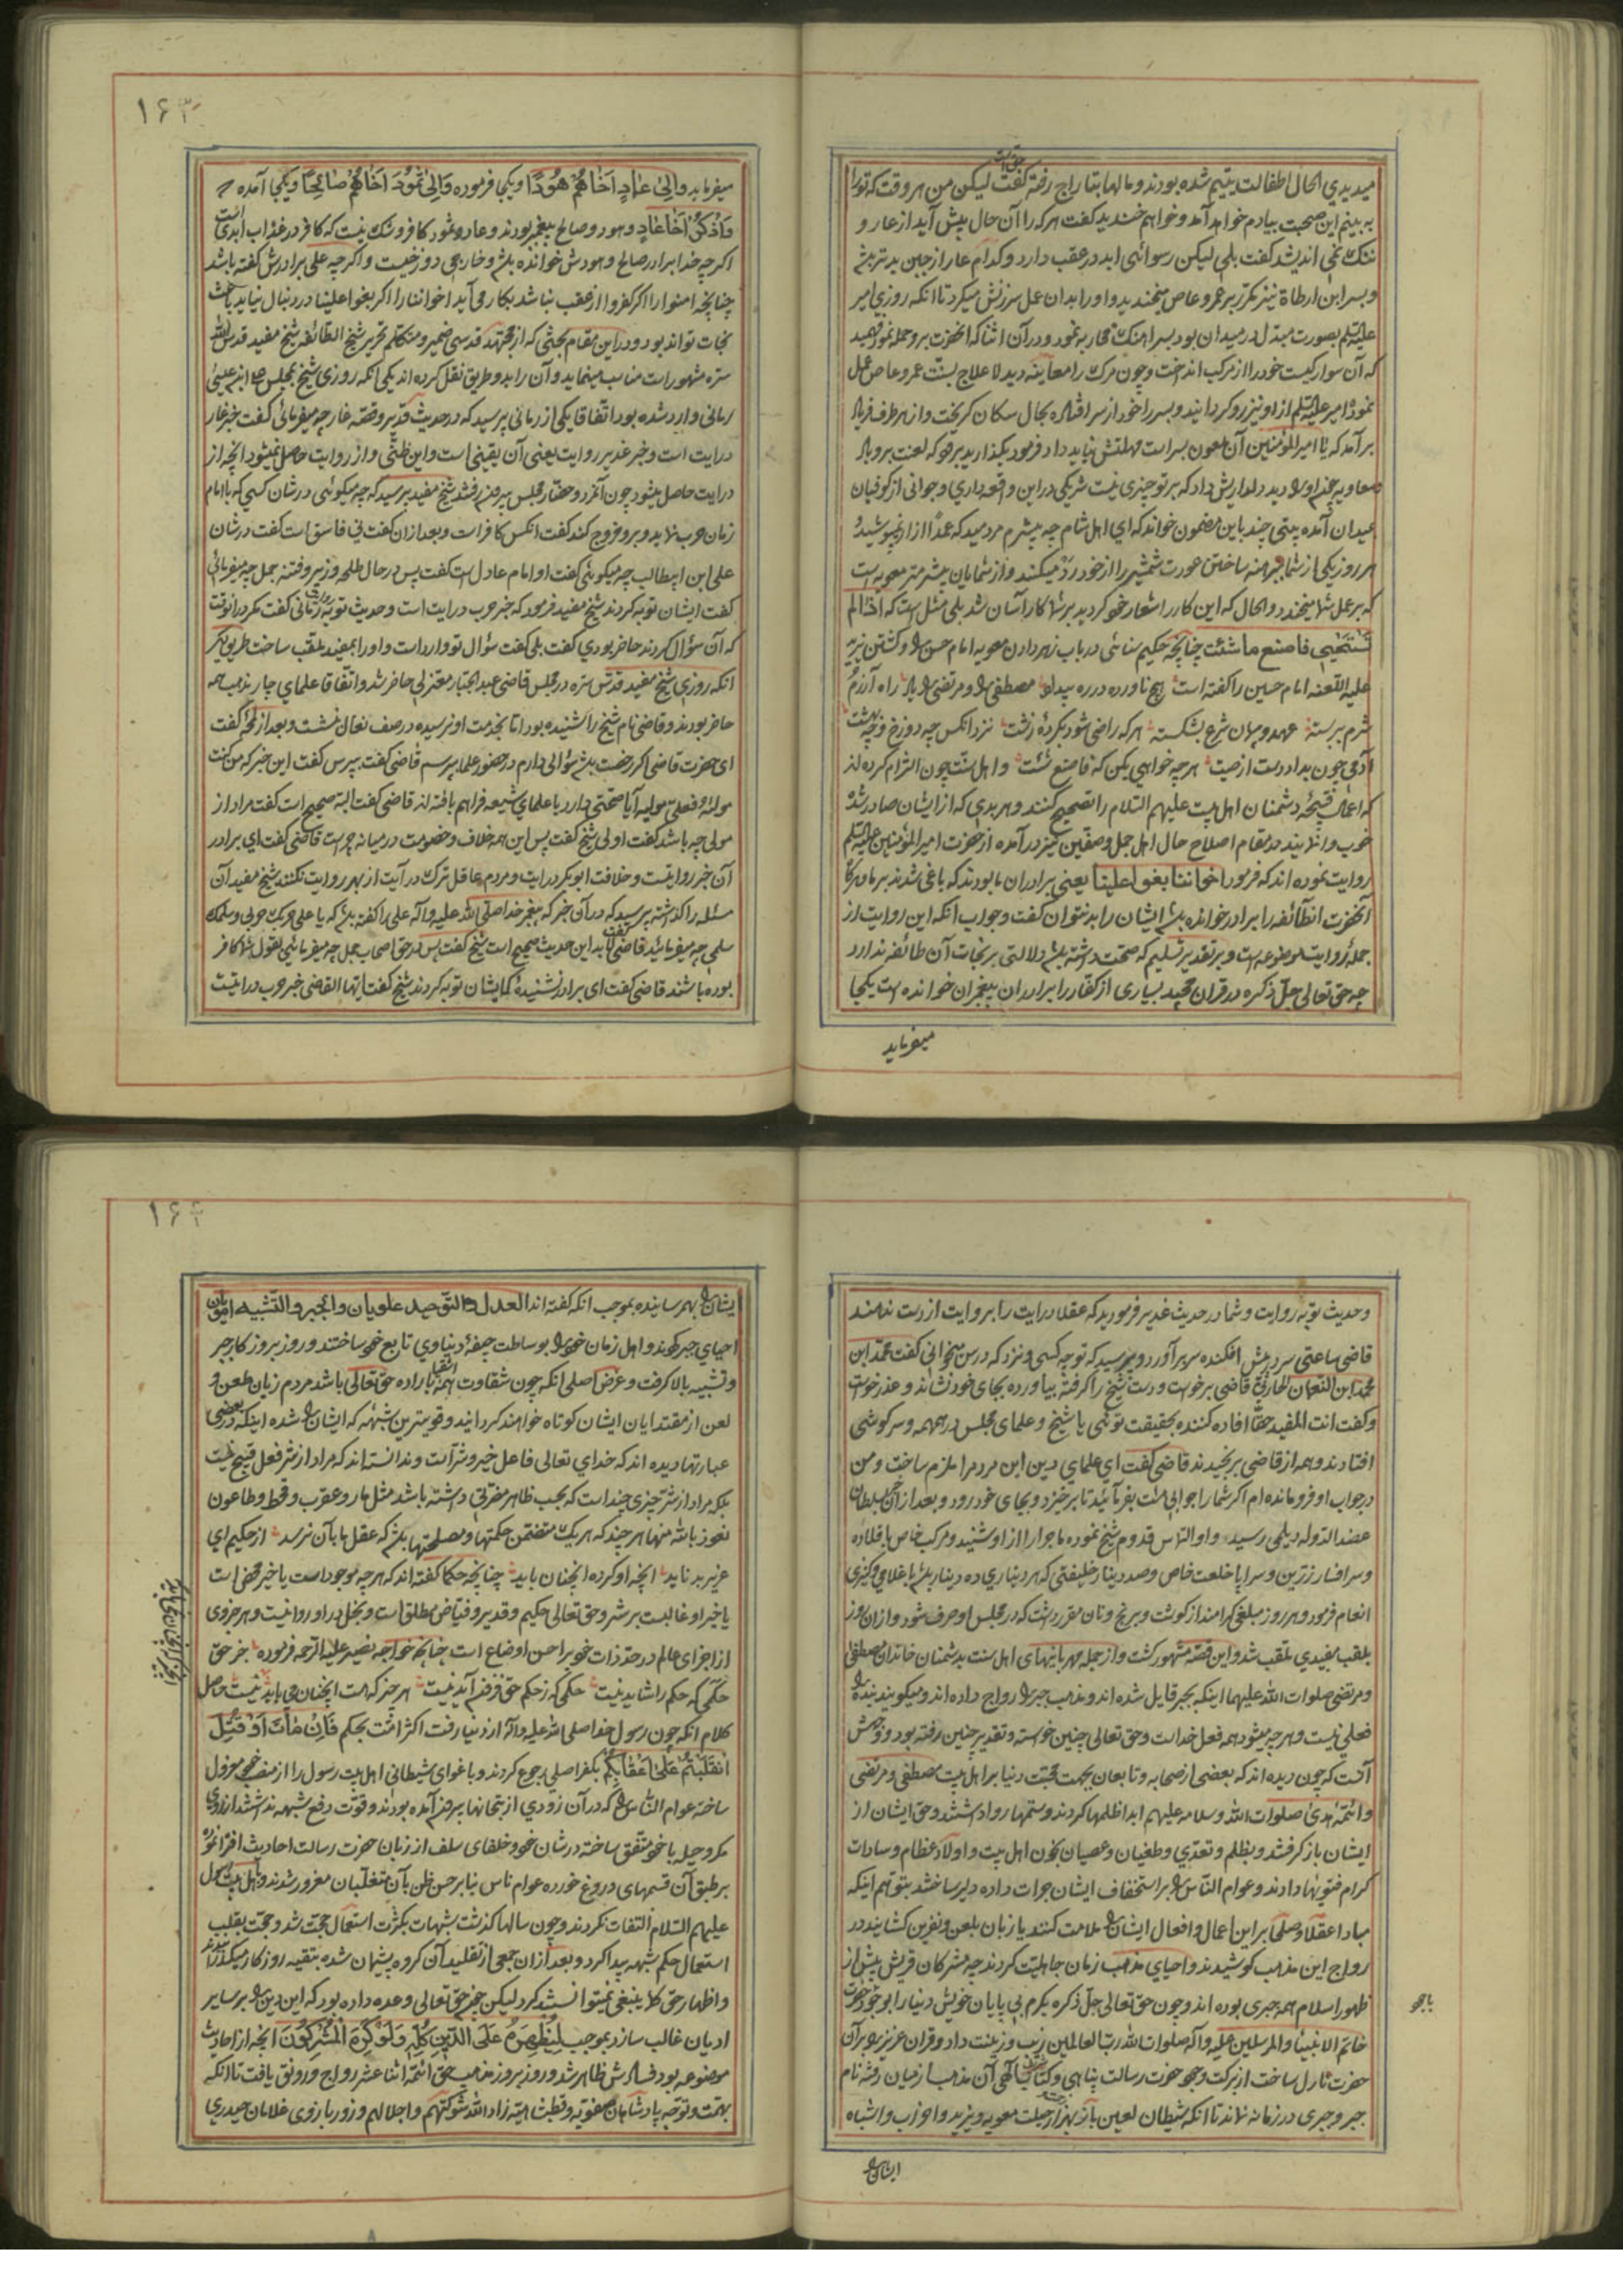 میدیدی الحال اطفالت یتیم شده بودند و مالها بتاراج رفته گفت لیکن من هر وقت که ترا
به بینم این صحبت بیادم خواهد آمد و خواهم خندید گفت هر که را آن حال پیش آید از عار و
ننگ نمی اندیشد گفت بلی لیکن رسوائی ابد در عقب دارد و کدام عار ازین بدتر باشد
و بسر ابن ارطاة نیز مکرر بر عمرو عاص میخندید و او را بدان عمل سرزنش میکرد تا انکه روزی امیر
علیه السلم بصورت مبدل در میدان بود بسر اهنک محاربه نمود و در آن اثنا که انحضرت برو حمله نمود فهمید
که آن سوار کیست خود را از مرکب انداخت و چون مرک را معاینه دید لا علاج بسنت عمرو عاص عمل
نمود امیر علیه السلم از او نیز رو کردانید و بسر را خود از سر افتاده بحال سکان کریخت و از هر طرف فریاد
برآمد که یا امیر المؤمنین آن ملعون بسر است مهلتش نباید داد فرمود بگذارید برو که لعنت برو باد
معاویه چون او را دید دلداریش داد که بر تو چیزی نیست شریکی در این واقعه داری و جوانی از کوفیان
بمیدان آمده بیتی چند باین مضمون خواند که ای اهل شام چه بیشرم مردمید که عمدا ازار نپوشید و
هر روز یکی از شما برهنه ساختن عورت شمشیر را از خود رد میکند و از شمایان بیشرمتر معویه است
که بر عمل شما میخندد و الحال که این کار را شعار خود کردید بر شما کار آسان شد بلی مثل است که اذا لم
تستحیی فاصنع ما شئت چنانچه حکیم سنائی در باب زهر دادن معویه امام حسن را و کشتن یزید
علیه اللعنه امام حسین را گفته است هیچ ناورده در ره بیداد مصطفی را و مرتضی را یاد راه آزرم
شرم بربسته عهد و پیمان شرع بشکسته هر که راضی شود بکرده زشت نزد انکس چه دوزخ و چه بهشت
آدمی چون بداد دست از صیت هر چه خواهی بکن که فاصنع شئت و اهل سنت چون التزام کرده اند
که اعمال قبیحه دشمنان اهل بیت علیهم السلام را تصحیح کنند و هر بدی که از ایشان صادر شده
خوب وانمایند در مقام اصلاح حال اهل جمل و صفین نیز در آمده از حضرت امیر المؤمنین علیه السلم
روایت نموده اند که فرمود اخواننا بغوا علینا یعنی برادران ما بودند که باغی شدند بر ما و هرکاه
آنحضرت انطائفه را برادر خوانده باشد ایشان را بد نتوان گفت و جواب انکه این روایت از
جمله روایت موضوعه است و بر تقدیر تسلیم که صحت داشته باشد دلالتی بر نجات آن طائفه ندارد
چه حق تعالی جل ذکره در قران مجید بسیاری از کفار را برادران پیغمبران خوانده است یکجا
میفرماید
۱۶۳
میفرماید والی عاد اخاهم هودا و یکجا فرموده و الی ثمود اخاهم صالحا و یکجا آمده
واذکر اخا عاد و هود و صالح پیغمبر بودند و عاد و ثمود کافر و شک نیست که کافر در عذاب ابدی است
اگر چه خدا برادر صالح و هودش خوانده باشد و خارجی دوزخیست و اگر چه علی برادرش گفته باشد
چنانچه امنوا را اکر کفروا از عقب نباشد بکار می آید اخواننا را اکر بغوا علینا در دنبال نیاید باعث
نجات تواند بود و در این مقام بحثی که از مجتهد قدسی ضمیر و متکلم نحریر شیخ الطائفه شیخ مفید قدس الله
سره مشهور است مناسب مینماید و آن را بدو طریق نقل کرده اند یکی انکه روزی شیخ بمجلس علی ابن عیسی
رمانی وارد شده بود اتفاقا یکی از رمانی پرسید که در حدیث غدیر و قصه غار چه میفرمائی گفت خبر غار
درایت است و خبر غدیر روایت یعنی آن یقینی است و این ظنی و از روایت حاصل نمیشود آنچه از
درایت حاصل میشود چون آنمرد و حضار مجلس بیرون رفتند شیخ مفید پرسید که چه میکوئی در شان کسی که با امام
زمان حرب نماید و برو خروج کند گفت انکس کافر است و بعد از ان گفت نی فاسق است گفت در شان
علی ابن ابیطالب چه میکوئی گفت او امام عادل است گفت پس در حال طلحه و زبیر و فتنه جمل چه میفرمائی
گفت ایشان توبه کردند شیخ مفید فرمود که خبر حرب درایت است و حدیث توبه روایت رمانی گفت مکر در انوقت
که آن سؤال کردند حاضر بودی گفت بلی گفت سؤال تو وارد است و او را بمفید ملقب ساخت طریق دیکر
انکه روزی شیخ مفید قدس سره در مجلس قاضی عبد الجبار معتزلی حاضر شد و اتفاقا علمای چار مذهب همه
حاضر بودند و قاضی نام شیخ را شنیده بود اما بخدمت او نرسیده در صف نعال نشست و بعد از لمحه گفت
ای حضرت قاضی اکر رخصت باشد سؤالی دارم در حضور علما پرسم قاضی گفت بپرس گفت این خبر که من کنت
مولاه فعلی مولیه آیا صحتی دارد یا علمای شیعه فراهم بافته اند قاضی گفت البته صحیح است گفت مراد از
مولی چه باشد گفت اولی شیخ گفت پس این همه خلاف و خصومت در میانه چراست قاضی گفت ای برادر
آن خبر روایتست و خلافت ابوبکر درایت و مردم عاقل ترک درایت از بهر روایت نکنند شیخ مفید آن
مسئله را گذاشته پرسید که در آن خبر که پیغمبر خدا صلی الله علیه و آله علی را گفته باشد که یا علی حربک حربی و سلمک
سلمی چه میفرمائید قاضی گفت این حدیث صحیح است شیخ گفت پس در حق اصحاب جمل چه میفرمائی بقول شما کافر
بوده باشند قاضی گفت ای برادر نشنیده که ایشان توبه کردند شیخ گفت ایها القاضی خبر حرب درایتست
و حدیث توبه روایت و شما در حدیث غدیر فرمودید که عقلا درایت را بروایت از دست ندهند
قاضی ساعتی سر در پیش افکنده سر برآورد و پرسید که تو چه کسی و نزد که درس میخوانی گفت محمد ابن
محمد ابن النعمان الحارثی قاضی برخوست و دست شیخ را کرفته بیاورده بجای خود نشاند و عذر خواست
و گفت انت المفید حقا افاده کننده بحقیقت توئی یا شیخ و علمای مجلس در همهمه و سرکوشی
افتادند و همه از قاضی برنجیدند قاضی گفت ای علمای دین این مرد مرا ملزم ساخت و من
در جواب او فرو مانده ام اکر شما را جوابی هست بفرمائید تا برخیزد و بجای خود رود و بعد از ان خبر بسلطان
عضد الدوله دیلمی رسید و او التماس قدوم شیخ نموده ماجرا را از او شنید و مرکب خاص با قلاده
و سر افسار زرین و سراپا خلعت خاص و صد دینار خلیفتی که هر دیناری ده دینار باشد با غلامی و کنیزی
انعام فرمود و هر روز مبلغی کرامند از کوشت و برنج و نان مقرر داشت که در مجلس او صرف شود و از ان روز
بلقب مفیدی ملقب شد و این قصه مشهور کشت و از جمله مهربانیهای اهل سنت بدشمنان خاندان مصطفی
و مرتضی صلوات الله علیهما اینکه بجبر قایل شده اند و مذهب جبر را رواج داده اند و میکویند بنده را
فعلی نیست و هر چه میشود همه فعل خداست و حق تعالی چنین خواسته و تقدیر چنین رفته بود و وجهش
آنست که چون دیده اند که بعضی از صحابه و تابعان بجهت محبت دنیا بر اهل بیت مصطفی و مرتضی
و ائمه هدی صلوات الله و سلامه علیهم ابدا ظلمها کردند و ستمها روا داشتند و حق ایشان از
ایشان باز کرفتند و بظلم و تعدی و طغیان و عصیان بخون اهل بیت و اولاد عظام و سادات
کرام فتویها دادند و عوام الناس را بر استخفاف ایشان جرات داده دلیر ساختند بتوهم اینکه
مبادا عقلا و صلحا بر این اعمال و افعال ایشان را ملامت کنند یا زبان بلعن و نفرین کشایند در
رواج این مذهب کوشیدند و احیای مذهب زمان جاهلیت کردند چه مشرکان قریش پیش از
ظهور اسلام همه جبری بوده اند و چون حق تعالی جل ذکره بکرم بی پایان خویش دنیا را بوجود حضرت
خاتم الانبیاء والمرسلین علیه و آله صلوات الله رب العالمین زیب و زینت داد و قران عزیز را بر آن
حضرت نازل ساخت از برکت وجود حضرت رسالت پناهی و کتاب الهی آن مذهب از میان رفته نام
جبر و جبری در زمانه نماند تا انکه شیطان لعین باز بهزار حیلت معویه و یزید و احزاب و اشباه
ایشان را
۱۶۴
ایشان را بهم رسانیده بموجب انکه گفته اند العدل و التوحید علویان والجبر والتشبیه امویان
احیای جبر کردند و اهل زمان خود را بوساطت جیفه دنیاوی تابع خود ساختند و روز بروز کار جبر
و تشبیه بالا کرفت و غرض اصلی انکه چون شقاوت اشقیا باراده حق تعالی باشد مردم زبان طعن و
لعن از مقتدایان ایشان کوتاه خواهند کردانید و قویترین شبهه که ایشان را شده اینکه در بعضی
عبارتها دیده اند که خدای تعالی فاعل خیر و شر است و ندانسته اند که مراد از شر فعل قبیح نیست
بلکه مراد از شر چیزی چند است که بحسب ظاهر مضرتی داشته باشد مثل مار و عقرب و قحط و طاعون
نعوذ بالله منها هر چند که هر یک متضمن حکمتها و مصلحتها باشد که عقل ما بآن نرسد از حکیم ای
عزیز بد ناید انچه او کرده انچنان باید چنانچه حکما گفته اند که هر چه موجود است یا خیر محض است
یا خیر او غالبست بر شر و حق تعالی حکیم و قدیر و فیاض مطلق است و بخل در او روا نیست و هر جزوی
از اجزای عالم در حد ذات خود بر احسن اوضاع است چنانچه خواجه نصیر علیه الرحمه فرموده جز حق
حکمی که حکم را شاید نیست حکمی که ز حکم حق فزون آید نیست هر چیز که هست انچنان می باید نیست حاصل
کلام انکه چون رسول خدا صلی الله علیه و آله از دنیا رفت اکثر امت بحکم فان مات او قتل
انقلبتم علی اعقابکم بکفر اصلی رجوع کردند و باغوای شیطانی اهل بیت رسول را از منصب خود معزول
ساخته عوام الناس را که در آن زودی از بتخانها بیرون آمده بودند و قوت دفع شبهه نداشتند از روی
مکر و حیل با خود متفق ساخته در شان خود و خلفای سلف از زبان حضرت رسالت احادیث افترا نموده
بر طبق آن قسمهای دروغ خورده عوام ناس بنا بر حسن ظن بآن متغلبان مغرور شدند و باهل بیت رسول
علیهم السلام التفات نکردند و چون سالها کذشت شبهات بکثرت استعمال حجت شد و حجت بقلت
استعمال حکم شبهه پیدا کرد و بعد از ان جمعی از تقلید آن کروه پشیمان شده بتقیه روزکار میکذرانیدند
و اظهار حق کما ینبغی نمیتوانستند کرد لیکن چون حق تعالی وعده داده بود که این دین را بر سایر
ادیان غالب سازد بموجب لیظهره علی الدین کله ولو کره المشرکون انچه از احادیث
موضوعه بود فسادش ظاهر شد و روز بروز مذهب حق ائمه اثنا عشر رواج و رونق یافت تا انکه
بهمت و توجه پادشاهان صفویه و قطبشاهیه زاد الله شوکتهم و اجلالهم و زور بازوی غلامان حیدری